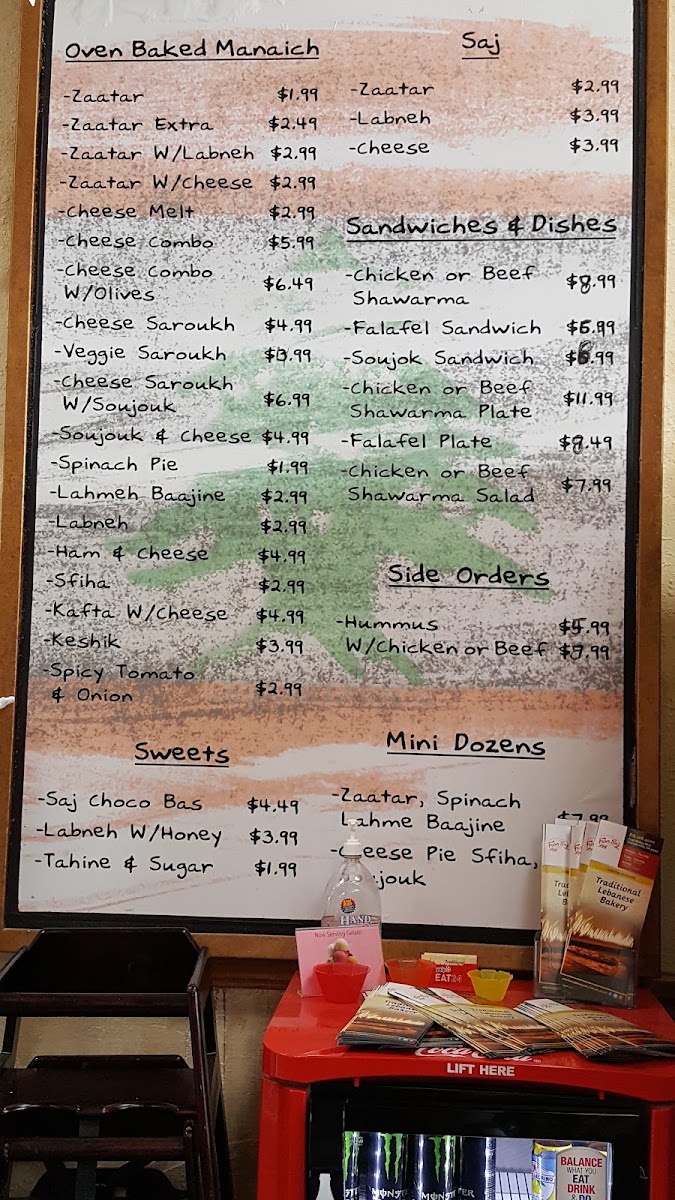 Oven Baked Manaich
-Zaatar $1.99
-Zaatar Extra $2.49
-Zaatar W/Labneh $2.99
-Zaatar W/Cheese $2.99
-Cheese Melt $2.99
-Cheese Combo $5.99
-Cheese Combo
W/Olives $6.49
-Cheese Saroukh $4.99
-Veggie Saroukh $3.99
-Cheese Saroukh
W/Soujouk $6.99
-Soujouk & Cheese $4.99
-Spinach Pie $1.99
-Lahmeh Baajine $2.99
-Labneh $2.99
-Ham & Cheese $4.99
-Sfiha $2.99
-Kafta W/Cheese $4.99
-Keshik $3.99
-Spicy Tomato
& Onion $2.99
Sweets
-Saj Choco Bas $4.49
-Labneh W/Honey $3.99
-Tahine & Sugar $1.99
Saj
-Zaatar $2.99
-Labneh $3.99
-Cheese $3.99
Sandwiches & Dishes
-Chicken or Beef
Shawarma $8.99
-Falafel Sandwich
-Soujok Sandwich
-Chicken or Beef
Shawarma Plate $11.99
-Falafel Plate $8.49
-Chicken or Beef
Shawarma Salad $7.99
Side Orders
-Hummus
W/Chicken or Beef
Mini Dozens
-Zaatar, Spinach
Lahme Baajine
Pie Sfiha,
HAND
Now Serving Gelato
EAT24
Traditional
Lebanese
Bakery
Coca-Cola
LIFT HERE
MONSTER
BALANCE
WHAT YOU
EAT
DRINK
& DO